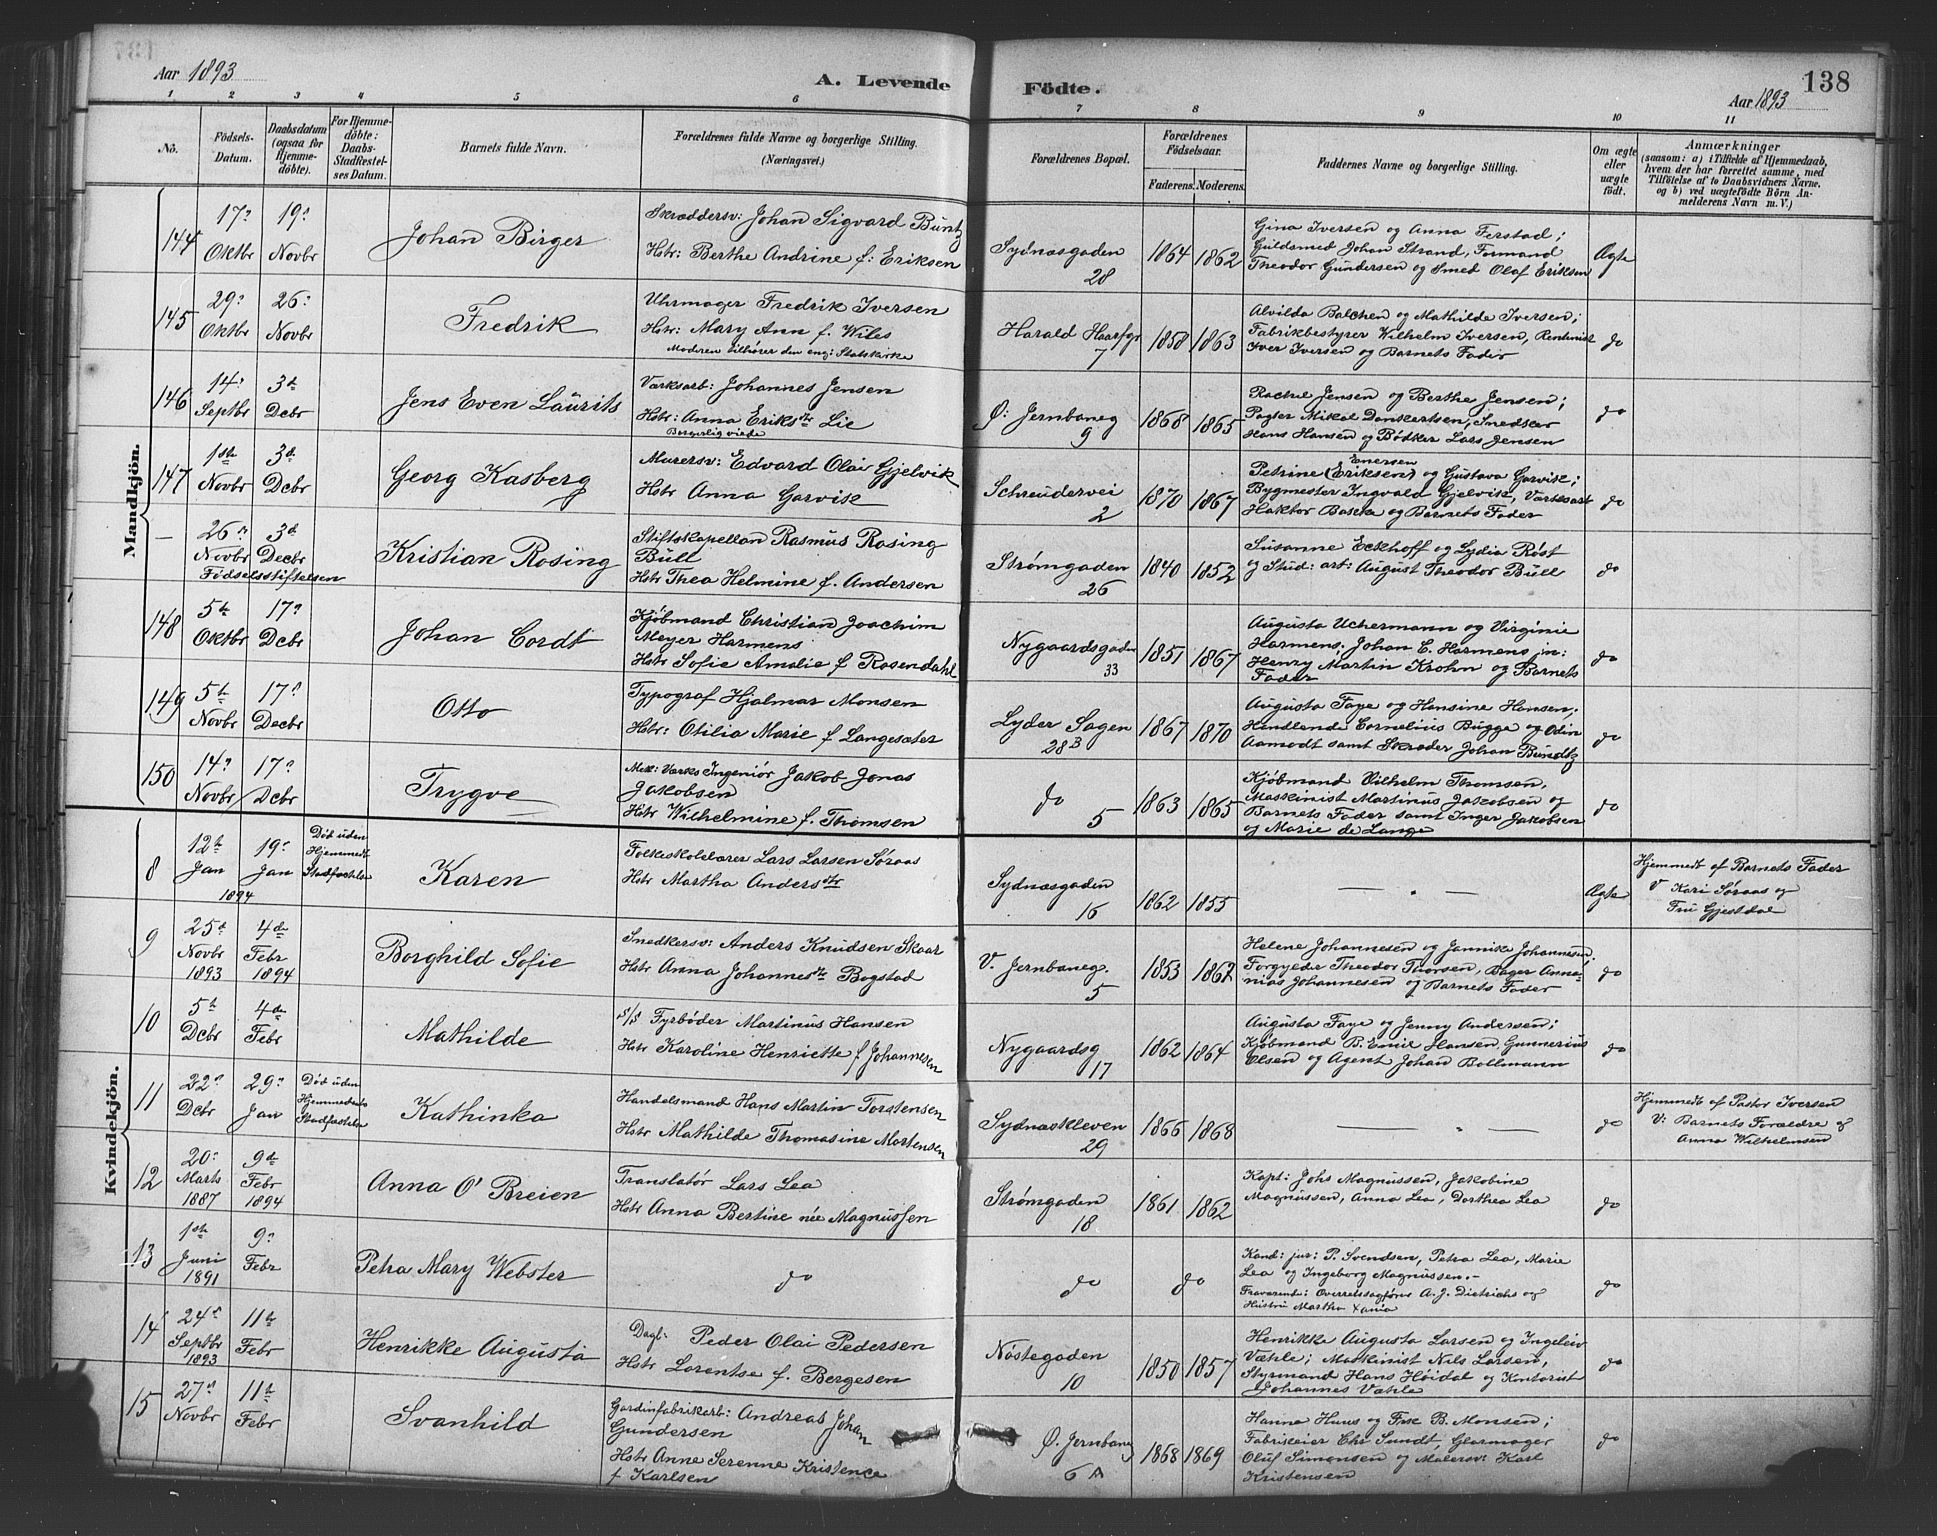 Aar 1893
A. Levende
Födte.
138
Aar 1893
1 2 3 4 5 6 7 8 9 10 11
No.
Födsels-
Datum.
Daabsdatum
(ogsaa for
Hjemme-
döbte).
For Hjemme-
döbte:
Daabs-
Stadfæstel-
ses Datum.
Barnets fulde Navn.
Forældrenes fulde Navne og borgerlige Stilling.
(Næringsvei.)
Forældrenes Bopæl.
Forældrenes
Födselsaar.
Faderens. Moderens.
Faddernes Navne og borgerlige Stilling.
Om ægte
eller
uægte
födt.
Anmærkninger
(saasom: a) i Tilfælde af Hjemmedaab,
hvem der har forrettet samme, med
Tilföielse af to Daabsvidners Navne,
og b) ved uægtefödte Börn An-
melderens Navn m. V.)
Mandkjön.
144
17de Oktbr
19de Novbr
Johan Birger
Skræddersv: Johan Sigvard Buntz
Hstr: Berthe Andrine f: Eriksen
Sydnæsgaden
28
1864 1862
Gina Iversen og Anna Ferstad;
Guldsmed Johan Strand, Formand
Theodor Gundersen og Smed Olaf Eriksen
Ægte
145
29de Oktbr
26de Novbr
Fredrik
Uhrmager Fredrik Iversen
Hstr: Mary Ann f. Wiles
Moderen tilhører den eng: Statskirke
Harald Haarfgr
7
1858 1863
Alvilda Balchen og Mathilde Iversen;
Fabrikbestyrer Wilhelm Iversen, Rentenist
Iver Iversen og Barnets Fader
do
146
14de Septbr
3d Decbr
Jens Even Laurits
Værksarb: Johannes Jensen
Hstr: Anna Eriksdtr Lie
Borgerlig viede
Ø: Jernbaneg
9
1868 1865
Rachel Jensen og Berthe Jensen;
Mikal Danckertsen, Snedker
Hans Hansen og Bødker Lars Jensen
do
147
1ste Novbr
3d Decbr
Georg Kasberg
Murersv: Edvard Olai Gjelvik
Hstr Anna Garvik
Schreudervei
2
1870 1867
Enersen
Petrine (Eriksen) og Gustava Garvik;
Bygmester Ingvald Gjelvik, Værksarb
Haktor Bakke og Barnets Fader
do
—
26de Novbr
3d Decbr
Fødselsstiftelsen
Kristian Rosing
Stiftskapellan Rasmus Rosing
Bull
Hstr Thea Helmine f. Andersen
Strømgaden
26
1840 1852
Susanne Eckhoff og Lydia Røst
og Stud: art: August Theodor Bull
do
148
5te Oktbr
17de Dcbr
Johan Cordt
Kjøbmand Christian Joachim
Meyer Harmens
Hstr Sofie Amalie f Rosendahl
Nygaardsgaden
33
1851 1867
Augusta Uchermann og Virginie
Harmens. Johan E. Harmens jn:
Henry Martin Krohn og Barnets
Fader
do
149
5te Novbr
17de Decbr
Otto
Typograf Hjalmar Monsen
Hstr: Otilia Marie f Langesæter
Lyder Sagen
28B
1867 1870
Augusta Faye og Hansine Hansen;
Handlende Cornelius Bugge og Odin
Aamodt samt Skræder Johan Bundtz
do
150
14de Novbr
17de Dcbr
Trygve
Mek: Værks Ingeniør Jakob Jonas
Jakobsen
Hstr Wilhelmine f. Thomsen
do
5
1863 1865
Kjøbmand Vilhelm Thomsen,
Maskinist Martinus Jakobsen og
Barnets Fader samt Inger Jakobsen
og Marie de Lange
do
Kvindekjön.
8
12te Jan
19de Jan
1894
Død uden
Hjemmedb
Stadfæstelse
Karen
Folkeskolelærer Lars Larsen Søraas
Hstr Martha Andersdtr
Sydnæsgaden
16
1862 1855
— " —
Ægte
Hjemmedt af Barnets Fader
V Kari Søraas og
Fru Gjestdal
9
25de Novbr 1893
4de Febr 1894
Borghild Sofie
Snedkersv: Anders Knudsen Skaar
Hstr Anna Johannesdtr Bogstad
V. Jernbaneg.
5
1853 1862
Helene Johannesen og Jannike Johannesen,
Forgylder Theodor Thorsen, Bager Anna-
nias Johannesen og Barnets Fader
do
10
5te Dcbr
4de Febr
Mathilde
S/S Fyrbøder Martinus Hansen
Hstr Karoline Henriette f Johannesen
Nygaardsg
17
1862 1864
Augusta Faye og Jenny Andersen;
Kjøbmand B. Emil Hansen, Gunnerius
Olsen og Agent Johan Bollmann
do
11
22de Dcbr
29de Jan
Død uden
Hjemmedaabs
Stadfæstelse
Kathinka
Handelsmand Hans Martin Torstensen
Hstr Mathilde Thomasine Mortensen
Sydnæskleven
29
1866 1868
— " —
do
Hjemmedt af Pastor Iversen
V: Barnets Forældre og
Anna Wilhelmsen
12
20de Marts 1887
9de Febr 1894
Anna O' Breien
Translatør Lars Lea
Hstr Anna Bertine née Magnussen
Strømgaden
18
1861 1862
Kapt: Johs Magnussen, Jakobine
Magnussen, Anna Lea, Dorthea Lea
do
13
1ste Juni 1891
9de Febr
Petra Mary Webster
do
do
do
Kand: jur: P. Svendsen, Petra Lea, Marie
Lea og Ingeborg Magnussen.-
Fraværende: Overretssagfører A. J. Dietrichs og
Hustru Martha Xania
do
14
24de Septbr 1893
11te Febr
Henrikke Augusta
Dagl: Peder Olai Pedersen
Hstr Lorentse f. Bergesen
Nøstegaden
10
1850 1857
Henrikke Augusta Larsen og Ingeleiv
Væhle; Maskinist Nils Larsen,
Styrmand Hans Høidal og Kontorist
Johannes Væhle
do
15
27de Novbr
11te Febr
Svanhild
Gardinfabrikarb: Andreas Johan
Gundersen
Hstr Anne Serenne Kristence
f Karlsen
Ø. Jernbaneg
6A
1868 1869
Hanna Huus og Frk B. Monsen;
Fabrikeier Chr Sundt, Glarmager
Oluf Simonsen og Malersv: Karl
Kristensen
do